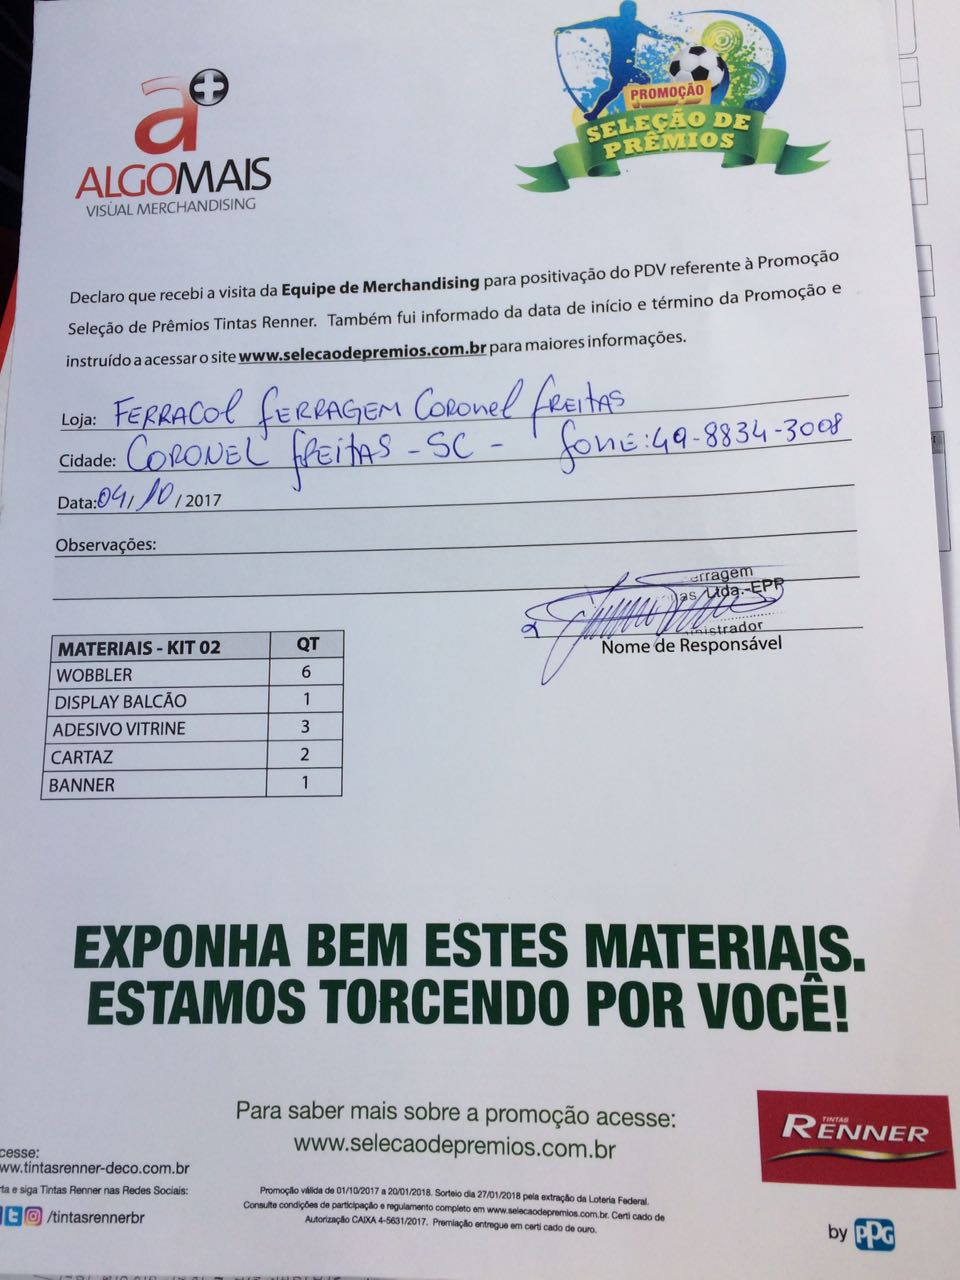 a+
ALGOMAIS
VISUAL MERCHANDISING
PROMOÇÃO
SELEÇÃO DE
PRÊMIOS
Declaro que recebi a visita da Equipe de Merchandising para positivação do PDV referente à Promoção
Seleção de Prêmios Tintas Renner. Também fui informado da data de início e término da Promoção e
instruído a acessar o site www.selecaodepremios.com.br para maiores informações.
Loja: FERRACOL FERRAGEM CORONEL FREITAS
Cidade: CORONEL FREITAS - SC - FONE: 49-8834-3008
Data: 04/10/2017
Observações:
erragem
as Ltda.-EPP
nistrador
Nome de Responsável
MATERIAIS - KIT 02 QT
WOBBLER 6
DISPLAY BALCÃO 1
ADESIVO VITRINE 3
CARTAZ 2
BANNER 1
EXPONHA BEM ESTES MATERIAIS.
ESTAMOS TORCENDO POR VOCÊ!
Para saber mais sobre a promoção acesse:
www.selecaodepremios.com.br
TINTAS
RENNER
cesse:
ww.tintasrenner-deco.com.br
rta e siga Tintas Renner nas Redes Sociais:
/tintasrennerbr
Promoção válida de 01/10/2017 a 20/01/2018. Sorteio dia 27/01/2018 pela extração da Loteria Federal.
Consulte condições de participação e regulamento completo em www.selecaodepremios.com.br. Certi cado de
Autorização CAIXA 4-5631/2017. Premiação entregue em certi cado de ouro.
by PPG